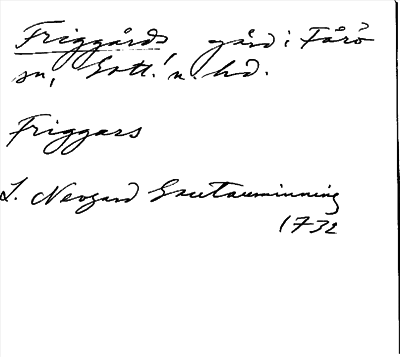 Friggårds, gård i Fårö
sn, Gotl. n. hd.
Friggars
L. Neogard Gautauminning
1732